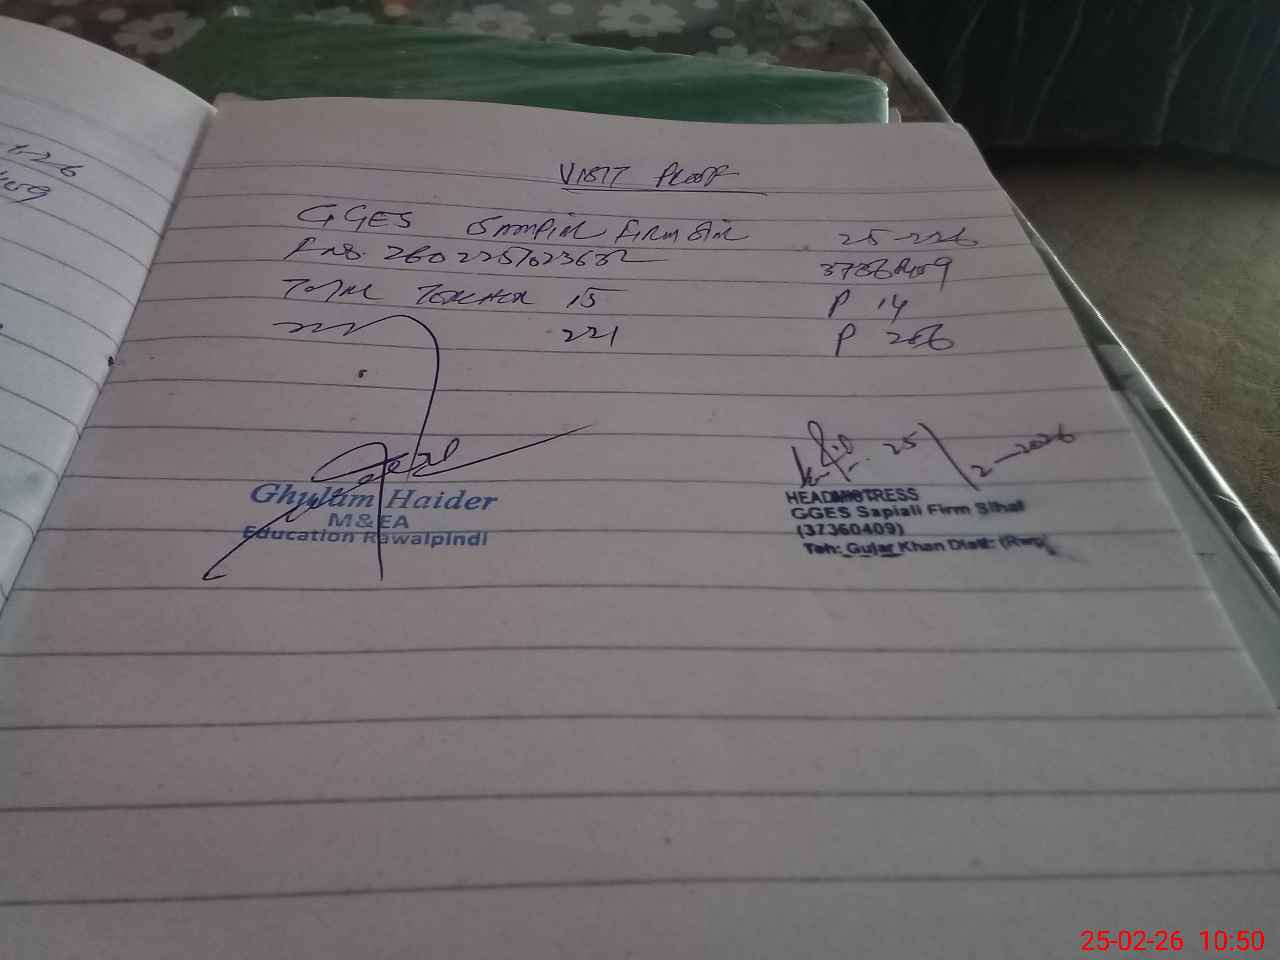 1-26
VISIT PROOF
GGES SAPIALI FIRM SIHAL 25-2-26
37360409
TOTAL TEACHER 15 P 14
221 P 206
25/2-2026
Ghulam Haider
M&EA
Education Rawalpindi
HEADMISTRESS
GGES Sapiali Firm Sihal
(37360409)
Teh: Gujar Khan Distt: (Rwp)
25-02-26 10:50